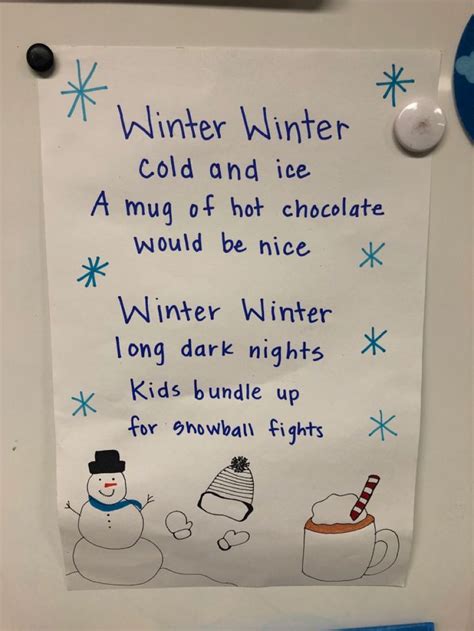 Winter Winter
Cold and ice
A mug of hot chocolate
would be nice
Winter Winter
long dark nights
Kids bundle up
for snowball fights